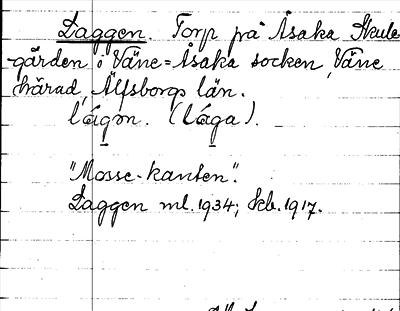 Laggen. Torp på Åsaka Skule-
gården i Väne=Åsaka socken, Väne
härad, Älfsborgs län.
lágən. (lága).
"Mosse-kanten".
Laggen ml. 1934; Kb. 1917.